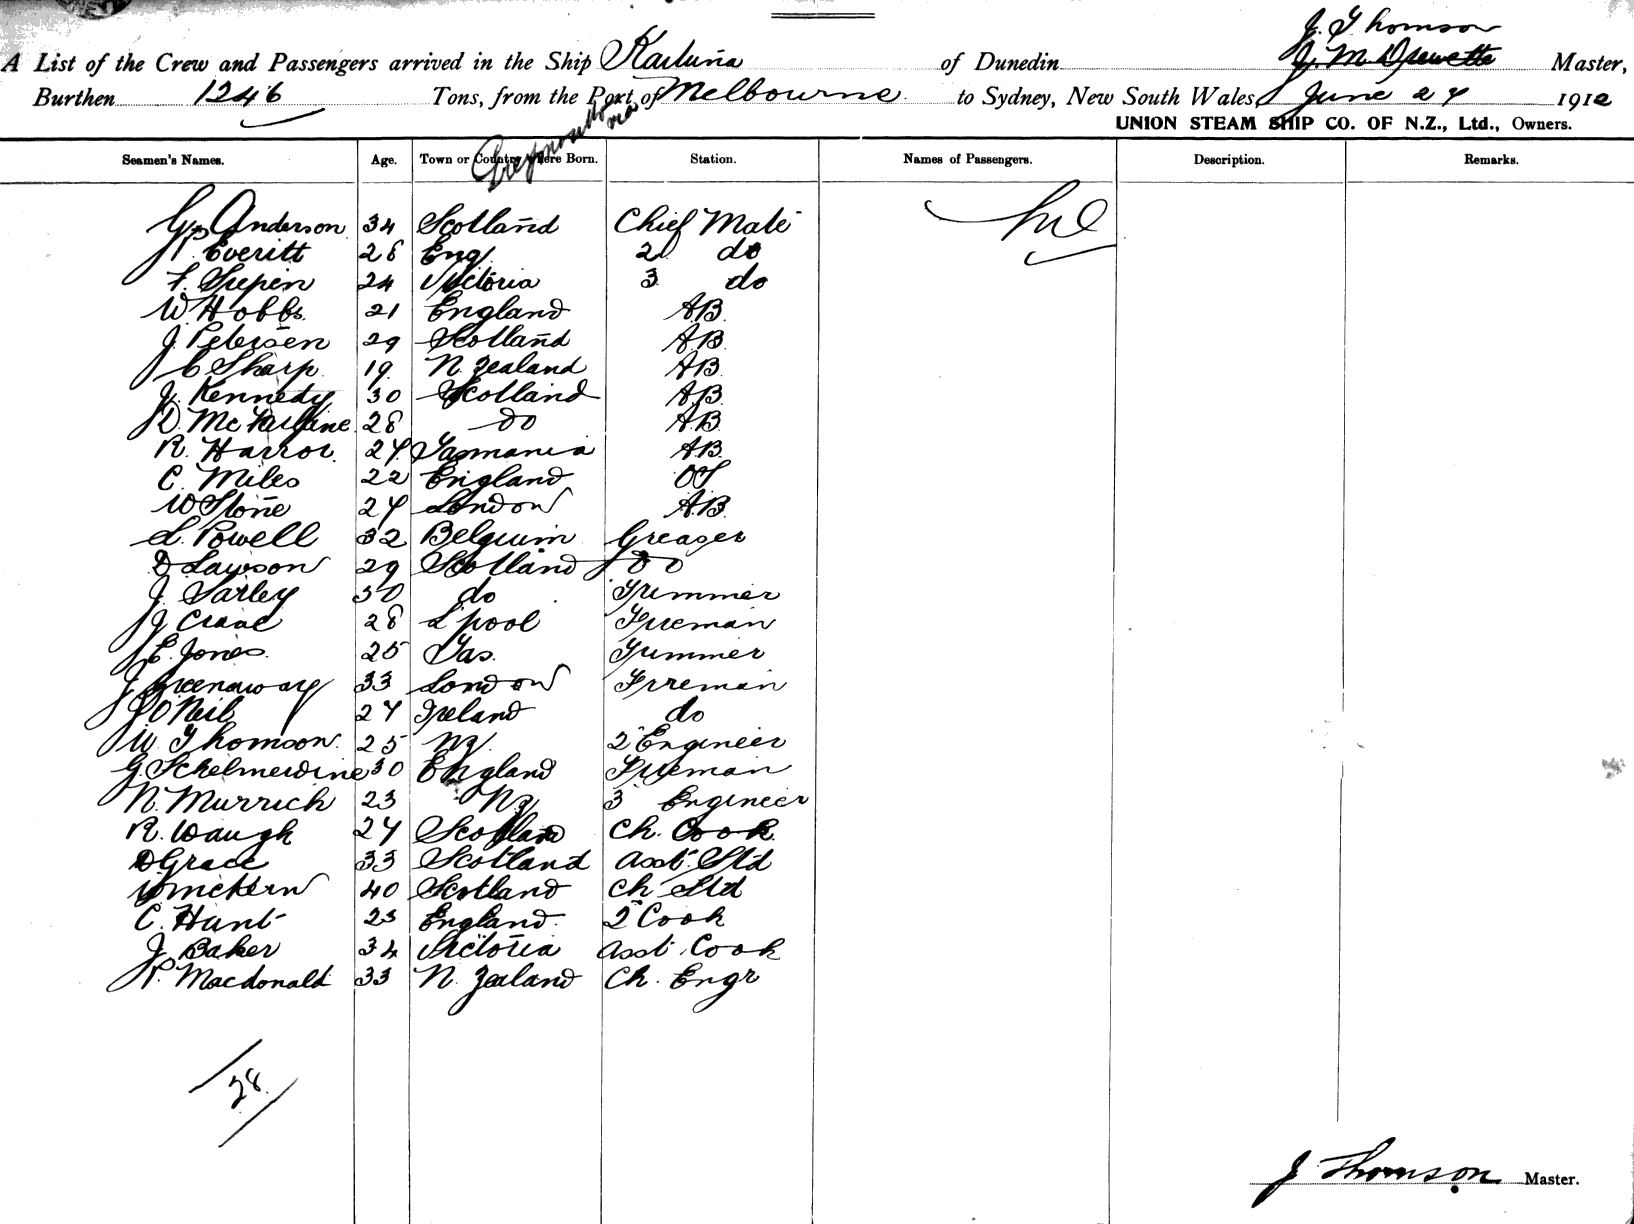 J. Thomson
A List of the Crew and Passengers arrived in the Ship Karluna of Dunedin J. M. Drewette Master,
Burthen 1246 Tons, from the Port of Melbourne to Sydney, New South Wales, June 27 1912
via
UNION STEAM SHIP CO. OF N.Z., Ltd., Owners.
Seamen's Names. Age. Town or Country where Born. Station. Names of Passengers. Description. Remarks.
G. Anderson 34 Scotland Chief Mate Nil
P. Everitt 28 Eng. 2 do
24 Victoria 3 do
W Hobbs 21 England A.B.
J. Petersen 29 Scotland A.B.
C Sharp 19 N. Zealand A.B.
J. Kennedy 30 Scotland A.B.
D. McFarlane 28 do A.B.
R. Harror. 27 Tasmania A.B.
C. Miles 22 England OS
W Stone 27 London A.B.
L. Powell 32 Belguim Greaser
D Lawson 29 Scotland do
J. Sarley 30 do Trimmer
J Crane 28 L'pool Fireman
E. Jones 25 Tas. Trimmer
J Greenaway 33 London Fireman
J O'Neil 27 Ireland do
W. Thomson. 25 NZ. 2 Engineer
G. Schelmerdine 30 England Fireman
N. Murrich 23 NZ 3 Engineer
R. Waugh 27 Scotland Ch. Cook
D Grace 33 Scotland Asst. Std
W McKern 40 Scotland Ch Std
C. Hunt 23 England. 2 Cook
J. Baker 34 Victoria Asst. Cook
P. Macdonald 33 N. Zealand Ch. Engr
28
J Thomson Master.